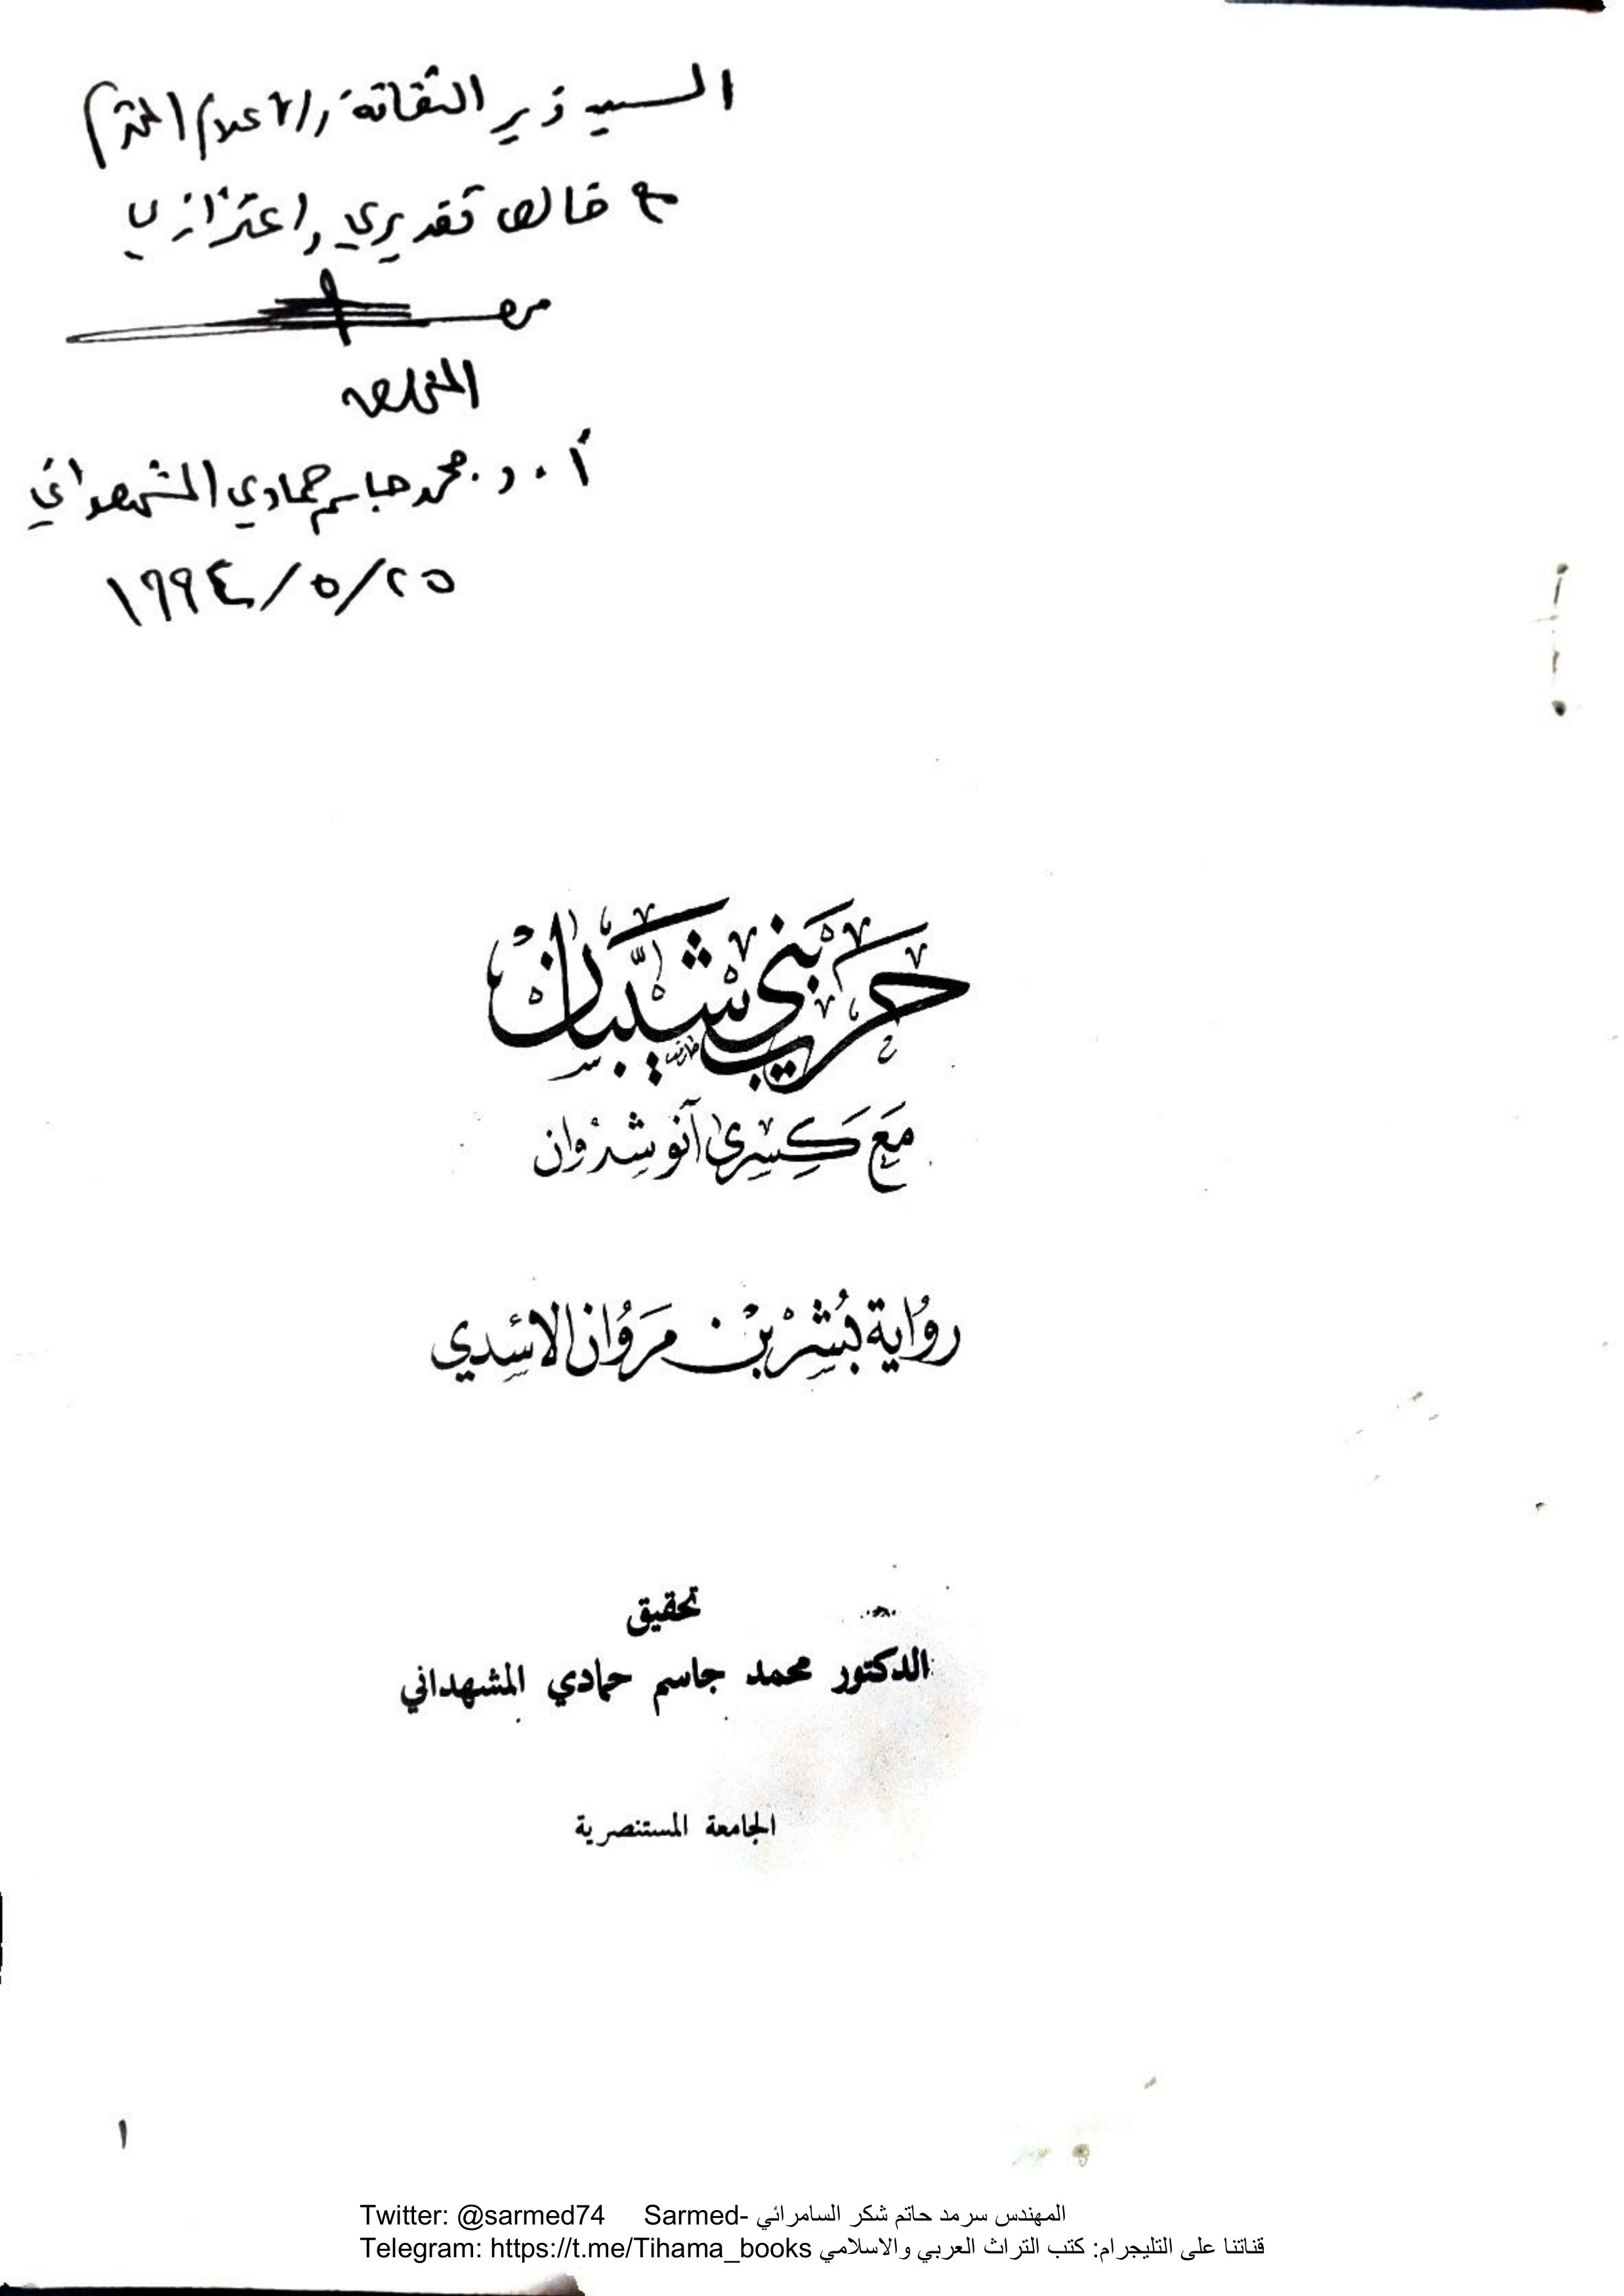 السيد وزير الثقافة والاعلام المحترم
مع خالص تقديري واعتزازي
المخلص
أ. د. محمد جاسم حمادي المشهداني
١٩٩٤/٥/٢٥
حَرب بَني شَيبَان
مَعَ كِسرى آنو شِروان
رواية بُشر بن مَروان الاسَدي
تحقيق
الدكتور محمد جاسم حمادي المشهداني
الجامعة المستنصرية
١
Twitter: @sarmed74 Sarmed- المهندس سرمد حاتم شكر السامرائي
Telegram: https://t.me/Tihama_books قناتنا على التليجرام: كتب التراث العربي والاسلامي